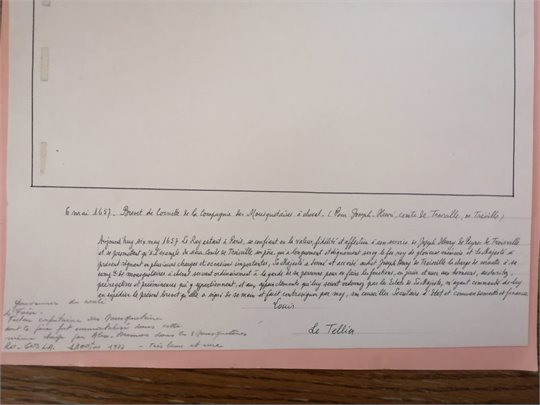 6 mai 1657 - Brevet de Cornette de la Compagnie des Mousquetaires à cheval. (Pour Joseph-Henri, comte de Troisville, ou Tréville)
Aujourd'huy six may 1657 Le Roy estant à Paris, se confiant en la valeur, fidélité et affection à son service de Joseph Henry de Peyre de Troisville
et se promettant qu'à l'exemple du comte de Troisville son père, qui a longuement et dignement servy le feu roy de glorieuse mémoire et Sa Majesté à
présent régnant en plusieurs charges et occasions importantes, Sa Majesté a donné et accordé audit Joseph Henry de Troisville la charge de cornette de
de mousquetaires à cheval servant ordinairement à la garde de sa personne pour en faire les fonctions, en jouir et user aux honneurs, autorités,
prérogatives et prééminences qui y appartiennent, et aux appointements qui luy seront ordonnez par les Estats de Sa Majesté, m'ayant commandé de luy
en expédier le présent brevet qu'elle a signé de sa main et fait contresigner par moy, son conseiller Secrétaire d'Estat et commandements et finances
Louis
Le Tellier
Gouverneur du comté
de Foix.
capitaine des Mousquetaires
dont le père fut immortalisé dans cette
même charge par Alex. Dumas dans les 3 Mousquetaires
- Très beau et rare